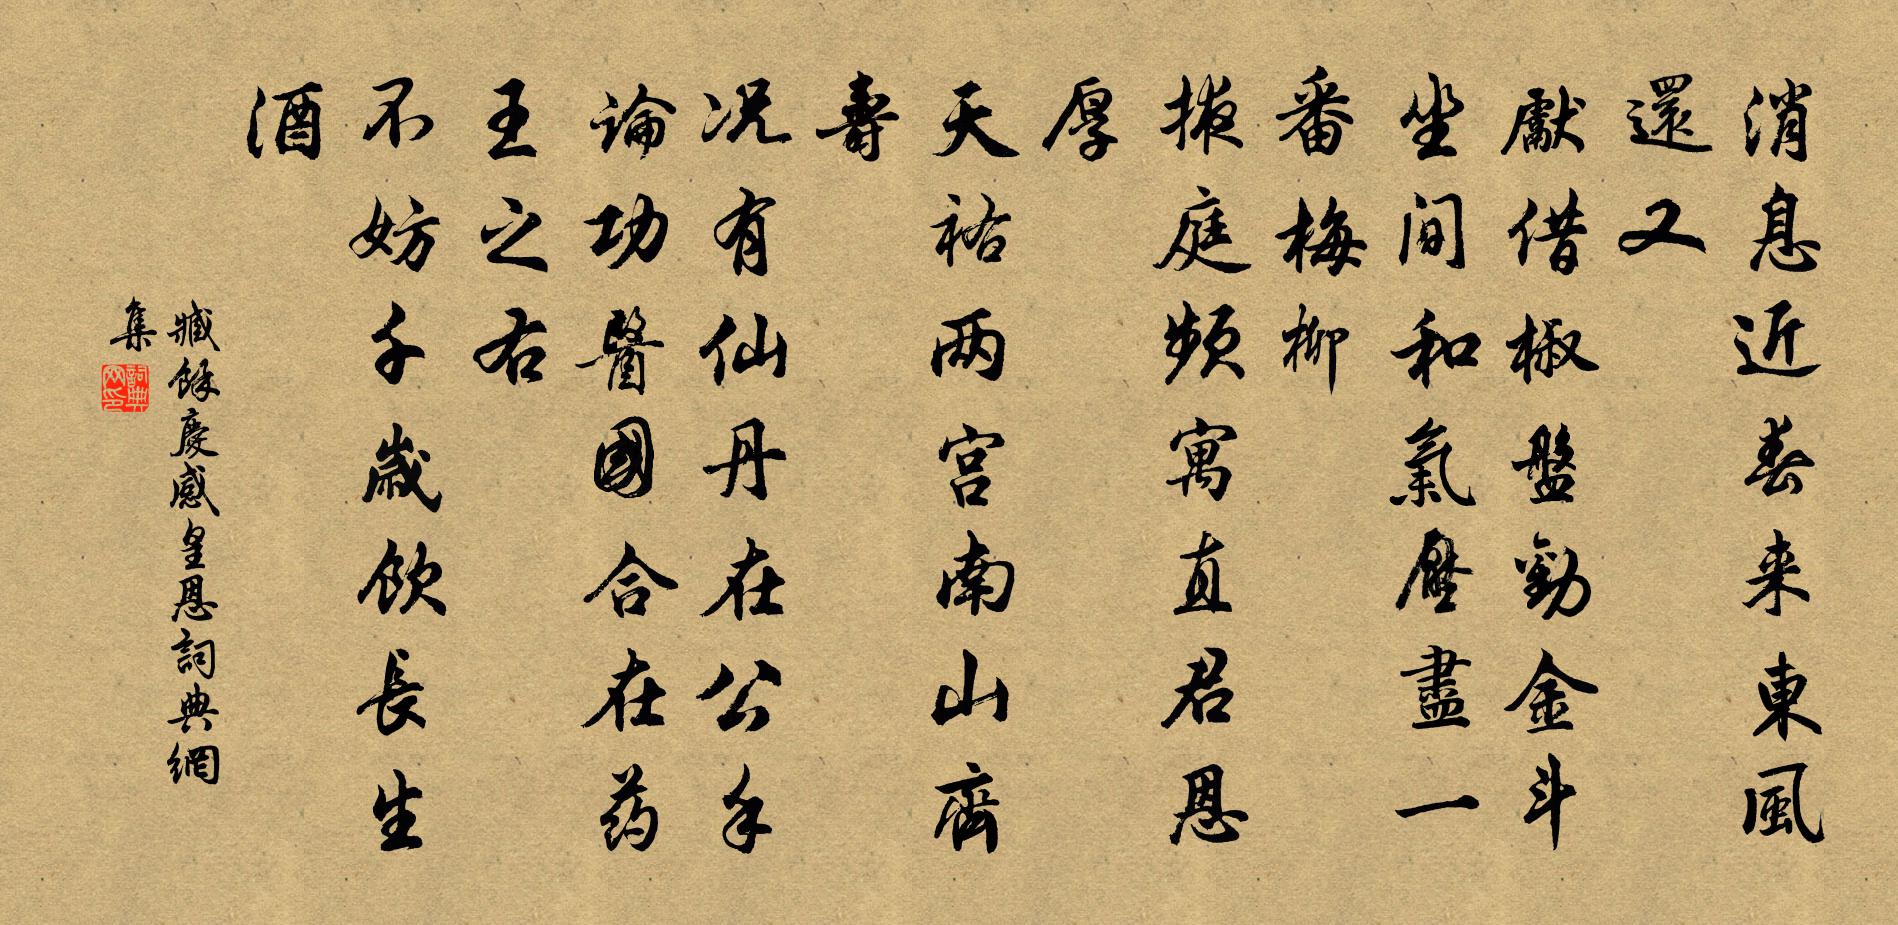 消息近春来東風
還又
獻借椒盤勸金斗
坐间和氣壓盡一
番梅柳
掖庭頻寓直君恩
厚
天祐两宫南山齊
壽
况有仙丹在公手
論功醫國合在药
王之右
不妨千歲飲長生
酒
臧餘慶感皇恩詞典網
集
詞典网印